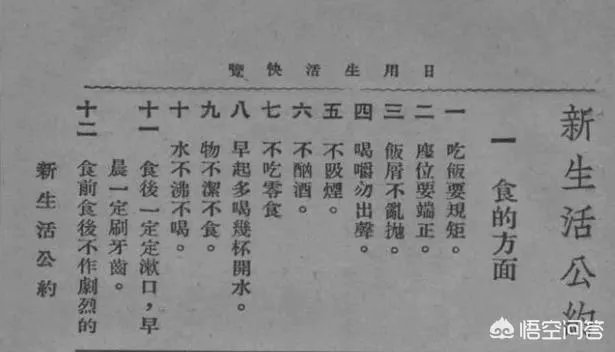 日用生活快覽
新生活公約
一 食的方面
一 吃飯要規矩。
二 座位要端正。
三 飯屑不亂拋。
四 喝嚼勿出聲。
五 不吸煙。
六 不酗酒。
七 不吃零食
八 早起多喝幾杯開水。
九 物不潔不食。
十 水不沸不喝。
十一 食後一定定漱口，早
晨一定刷牙齒。
十二 食前食後不作劇烈的
新生活公約
悟空问答